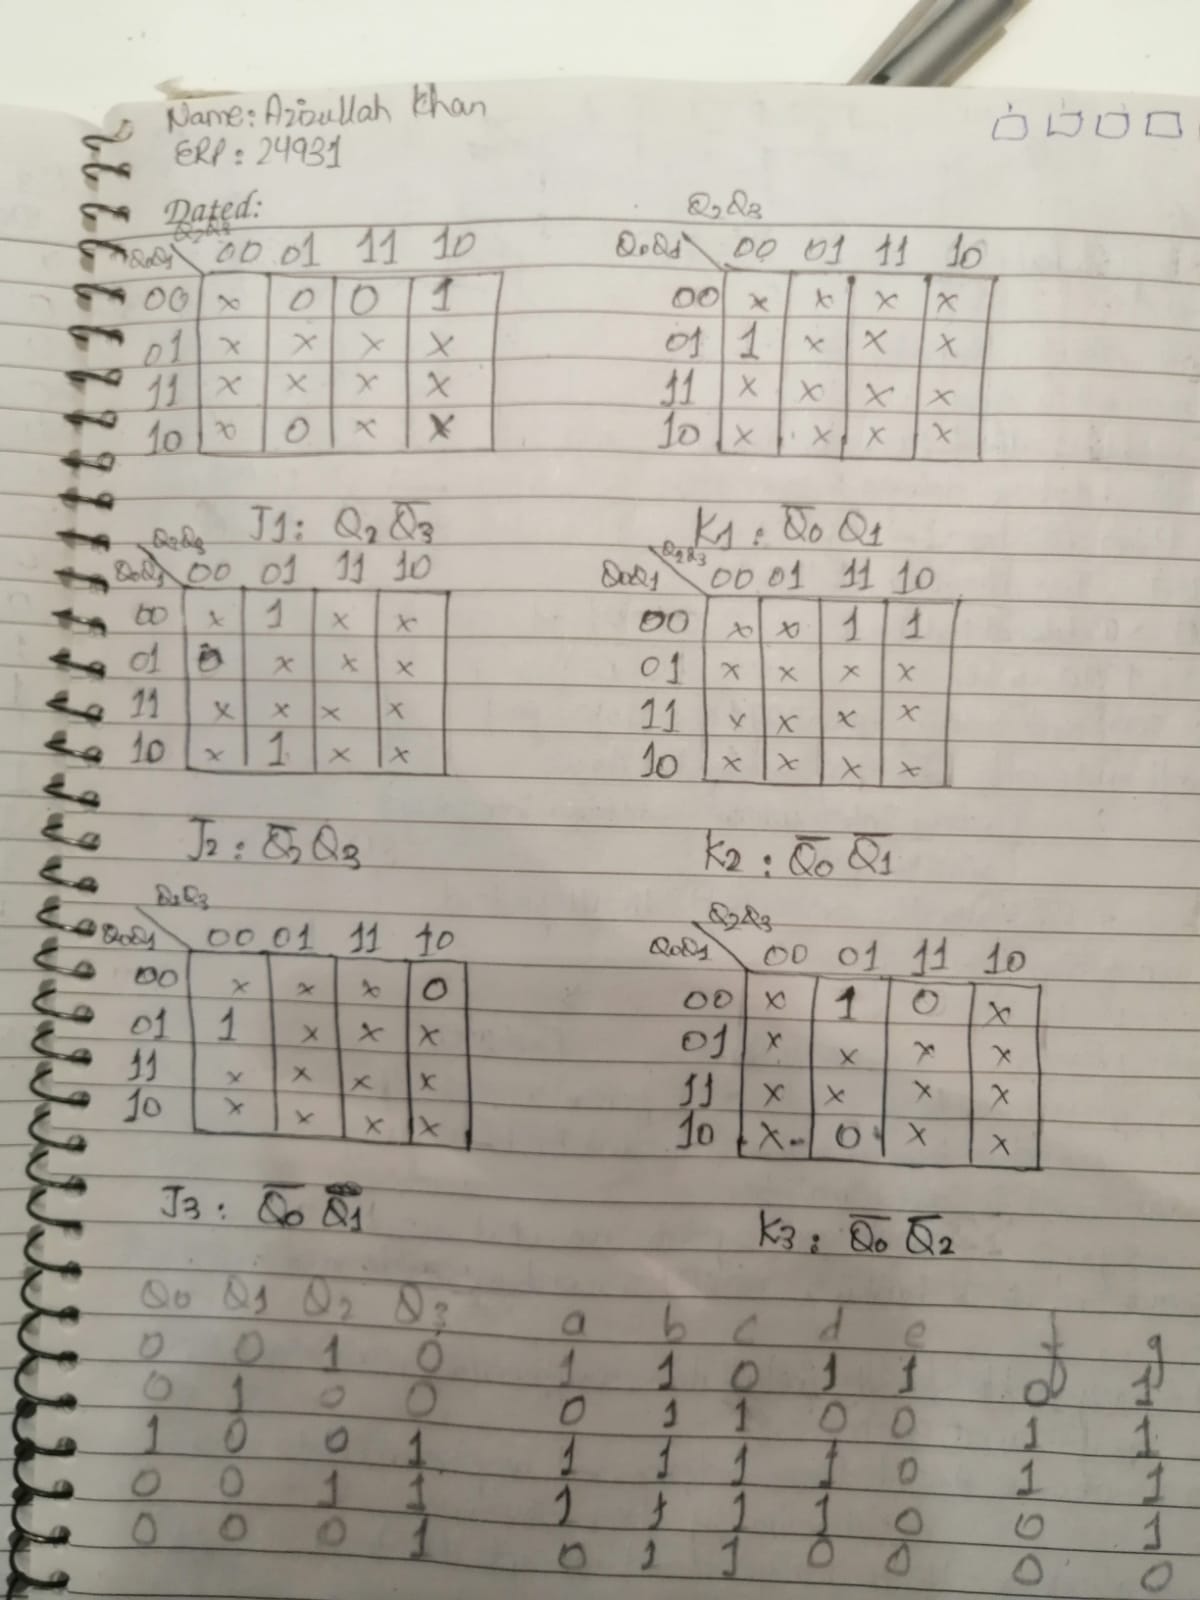 Name: Azizullah Khan
ERP: 24931
Dated:
Q2Q3
Q0Q1 00 01 11 10
00 x 0 0 1
01 x x x x
11 x x x x
10 x 0 x x
Q2Q3
Q0Q1 00 01 11 10
00 x x x x
01 1 x x x
11 x x x x
10 x x x x
J1: Q2 Q̅3
K1: Q̅0 Q1
Q2Q3
Q0Q1 00 01 11 10
00 x 1 x x
01 0 x x x
11 x x x x
10 x 1 x x
Q2Q3
Q0Q1 00 01 11 10
00 x x 1 1
01 x x x x
11 x x x x
10 x x x x
J2: Q̅2 Q3
K2: Q̅0 Q̅1
Q2Q3
Q0Q1 00 01 11 10
00 x x x 0
01 1 x x x
11 x x x x
10 x x x x
Q2Q3
Q0Q1 00 01 11 10
00 x 1 0 x
01 x x x x
11 x x x x
10 x 0 x x
J3: Q̅0 Q̅1
K3: Q̅0 Q̅2
Q0 Q1 Q2 Q3 a b c d e f g
0 0 1 0 1 1 0 1 1 0 1
0 1 0 0 0 1 1 0 0 1 1
1 0 0 1 1 1 1 1 0 1 1
0 0 1 1 1 1 1 1 0 0 1
0 0 0 1 0 1 1 0 0 0 0